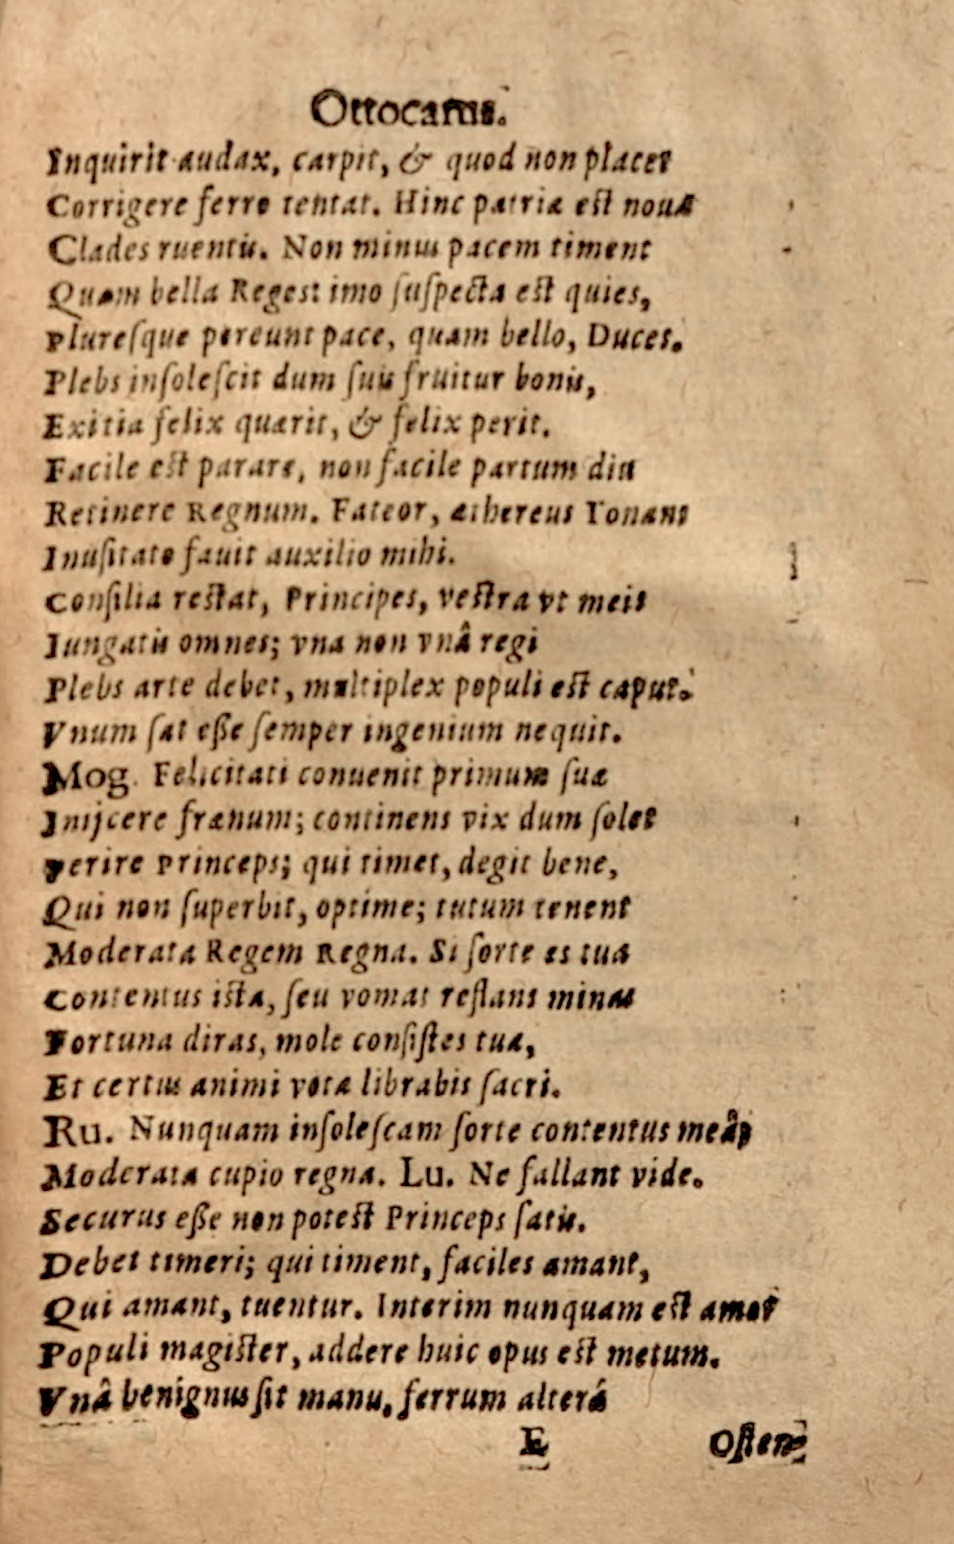 Ottocarus.
Inquirit audax, carpit, & quod non placet
Corrigere ferro tentat. Hinc patriæ est nouæ
Clades ruentis. Non minus pacem timent
Quam bella Reges: imo suspecta est quies,
Pluresque pereunt pace, quam bello, Duces.
Plebs insolescit dum suis fruitur bonis,
Exitia felix quærit, & felix perit.
Facile est parare, non facile partum diu
Retinere Regnum. Fateor, æthereus Tonans
Inusitato fauit auxilio mihi.
Consilia restat, Principes, vestra vt meis
Iungatis omnes; vna non vnâ regi
Plebs arte debet, multiplex populi est caput.
Vnum sat esse semper ingenium nequit.
Mog. Felicitati conuenit primum suæ
Inijcere frænum; continens vix dum solet
Perire Princeps; qui timet, degit bene,
Qui non superbit, optime; tutum tenent
Moderata Regem Regna. Si sorte es tua
Contentus ista, seu vomat restans minas
Fortuna diras, mole consistes tua,
Et certus animi vota librabis sacri.
Ru. Nunquam insolescam sorte contentus meâ,
Moderata cupio regna. Lu. Ne fallant vide.
Securus esse non potest Princeps satis.
Debet timeri; qui timent, faciles amant,
Qui amant, tuentur. Interim nunquam est amor
Populi magister, addere huic opus est metum.
Vnâ benignus sit manu, ferrum alterá
E Osten-